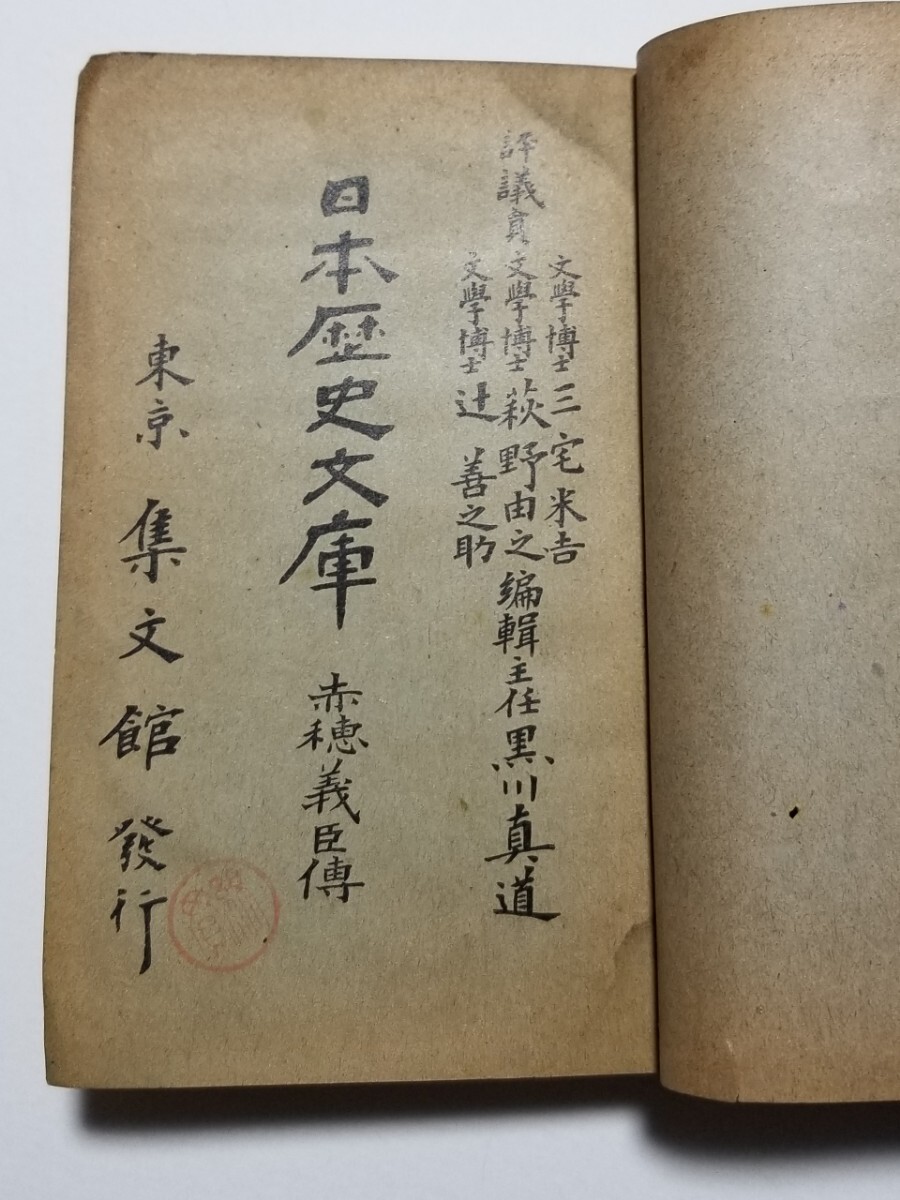 評議員
文學博士 三宅米吉
文學博士 萩野由之
文學博士 辻善之助
編輯主任 黒川真道
日本歴史文庫 赤穂義臣傳
東京 集文館 發行